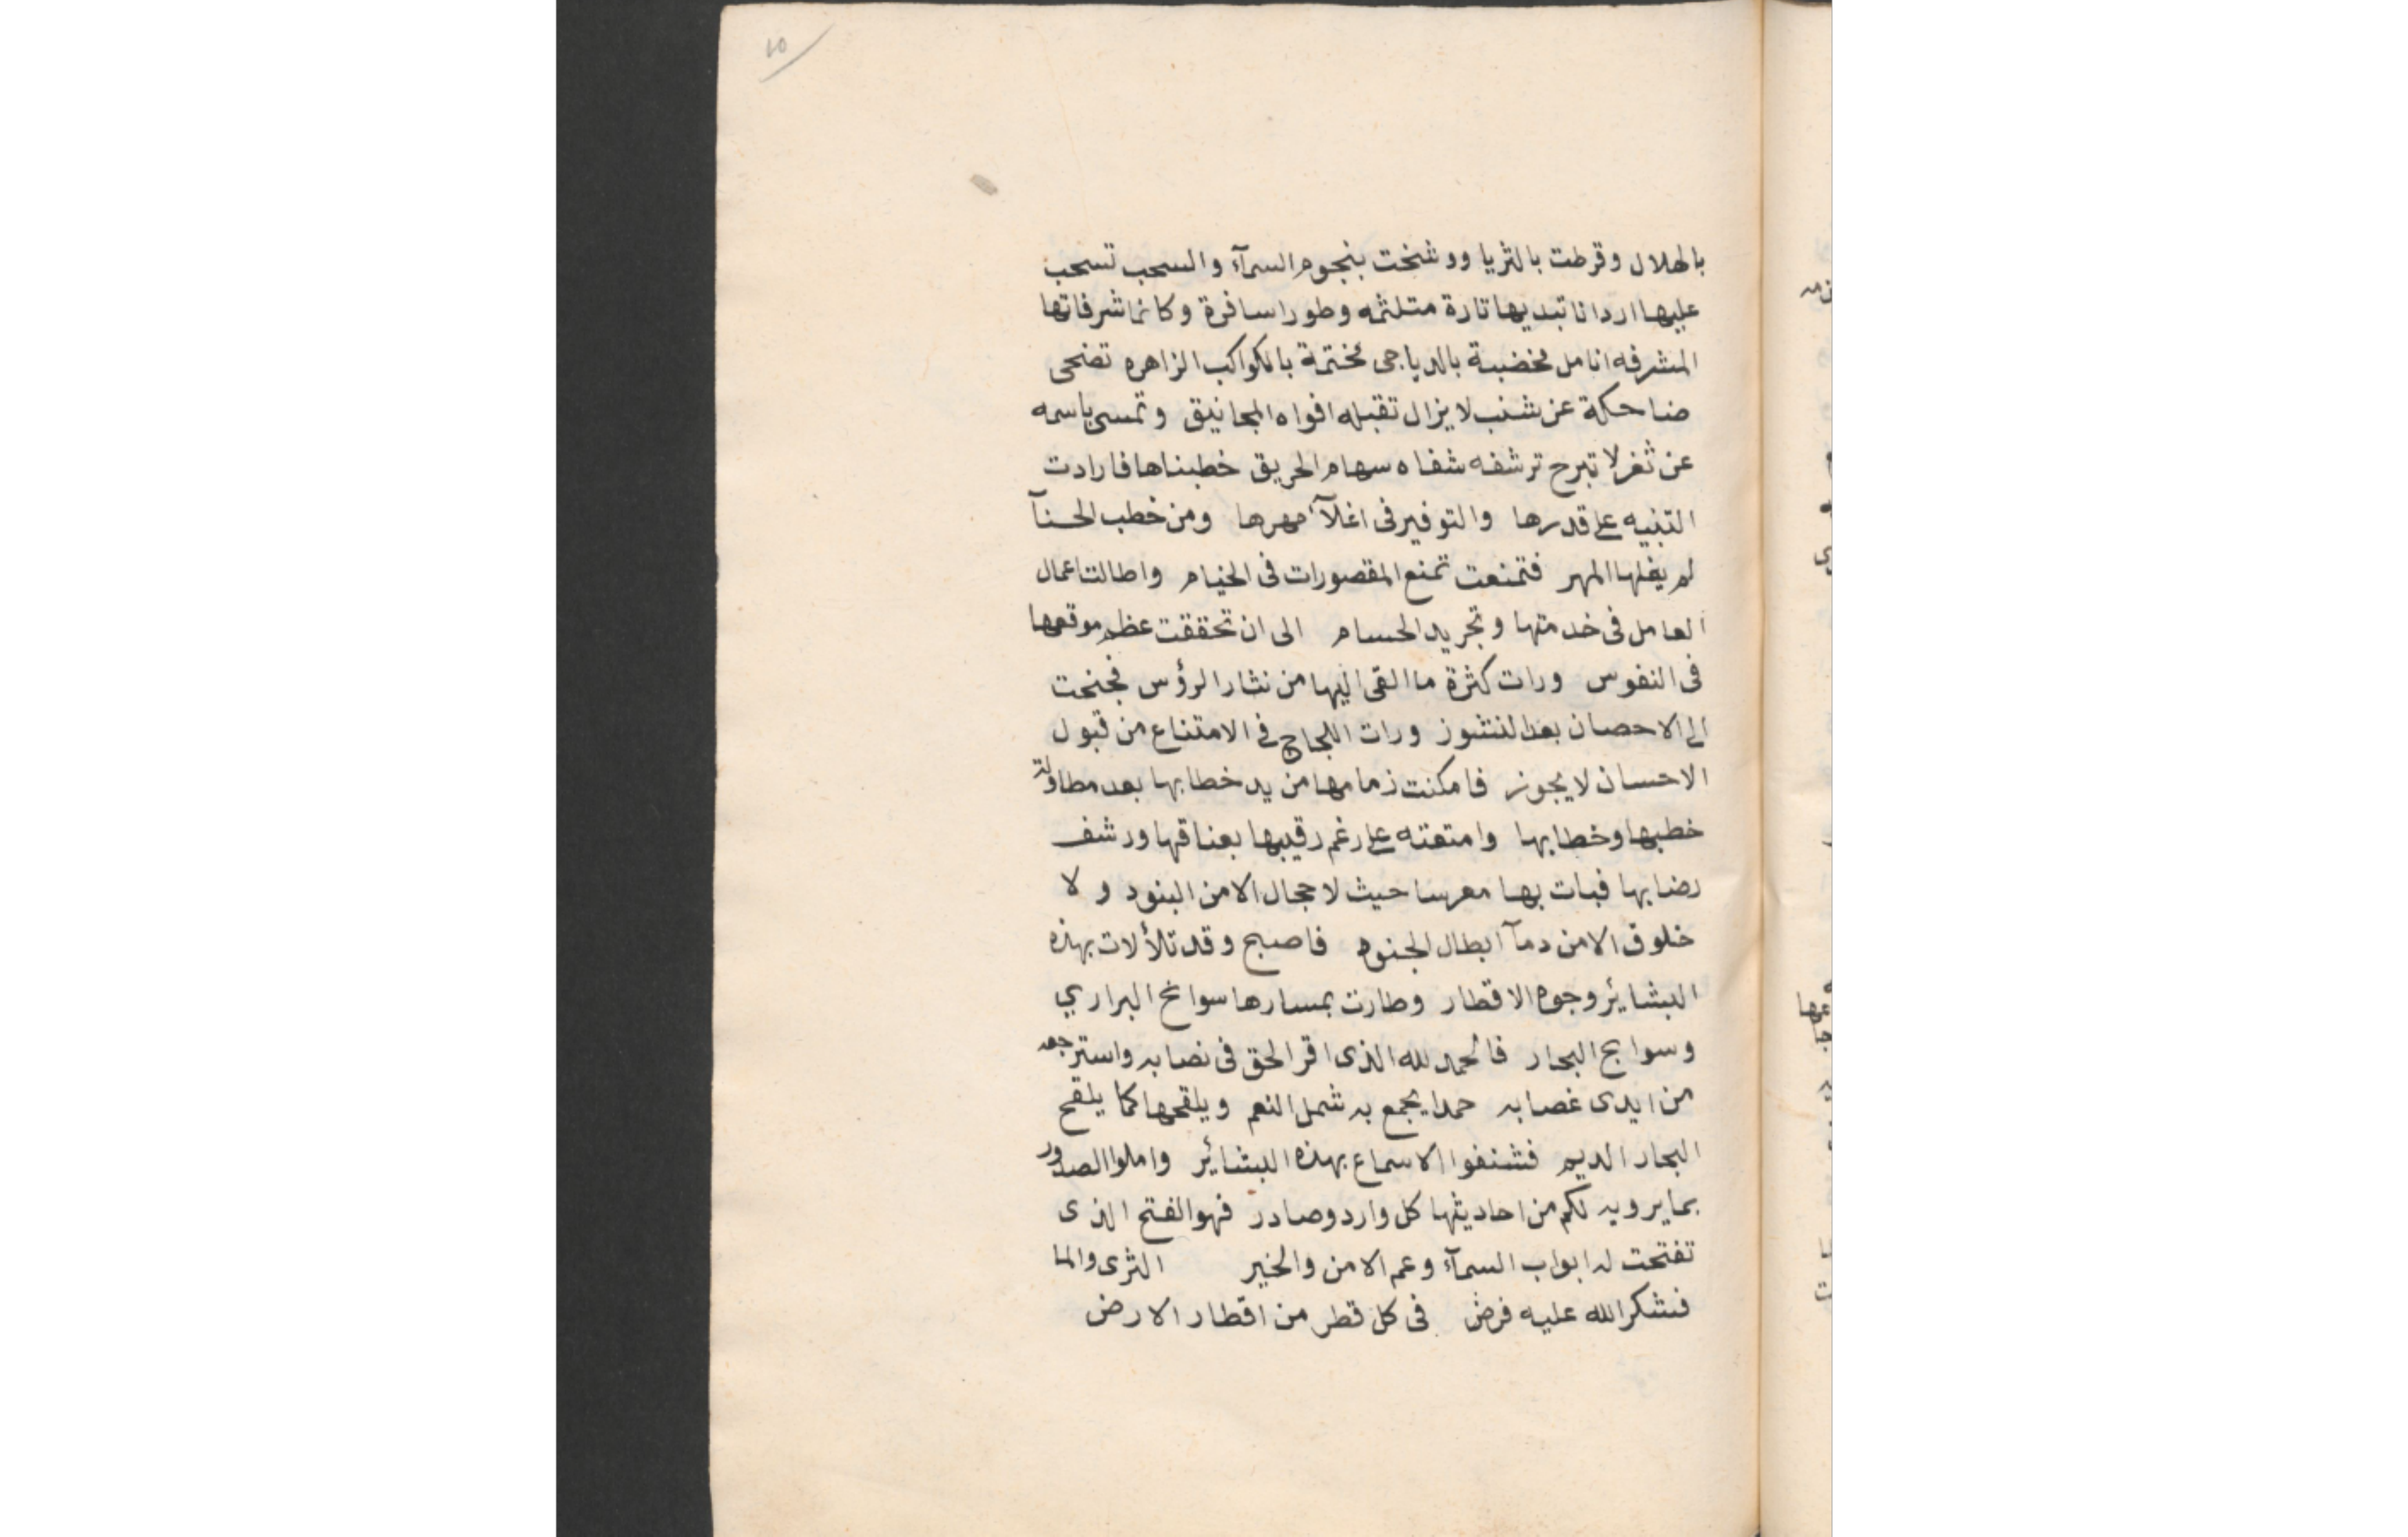 ٢٥
بالهلال وقرطت بالثريا ووشخت بنجوم السمآء والسحب تسحب
عليها اردانا تبديها تارة متلثمه وطورا سافرة وكانما شرفاتها
المشرفه انامل مخضبة بالدياجى مختمة بالكواكب الزاهره تضحى
ضاحكة عن شنب لا يزال تقبله افواه المجانيق وتمسى باسمه
عن ثغر لا تبرح ترشفه شفاه سهام الحريق خطبناها فارادت
التنبيه على قدرها والتوفير فى اغلآء مهرها ومن خطب الحسنآ
لم يغلها المهر فتمنعت تمنع المقصورات فى الخيام واطالت اعمال
العامل فى خدمتها وتجريد الحسام الى ان تحققت عظم موقعها
فى النفوس ورات كثرة ما القى اليها من نثار الرؤس فجنحت
الى الاحصان بعد النشوز ورات اللجاج فى الامتناع من قبول
الاحسان لا يجوز فامكنت زمامها من يد خطابها بعد مطاولة
خطبها وخطابها وامتعته على رغم رقيبها بعناقها ورشف
رضابها فبات بها معرسا حيث لا حجال الا من البنود ولا
خلوق الا من دمآ ابطال الجنود فاصبح وقد تلألات بهذه
البشايئر وجوه الاقطار وطارت بمسارها سوانح البراري
وسوابح البحار فالحمد لله الذى اقر الحق فى نصابه واسترجعه
من ايدى غصابه حمدا يجمع به شمل النعم ويلقحها كما يلقح
البحار الديم فشنفوا الاسماع بهذه البشائير واملوا الصدور
بما يرويه لكم من احاديثها كل وارد وصادر فهو الفتح الذى
تفتحت له ابواب السمآء وعم الامن والخير الثرى والما
فشكر الله عليه فرض فى كل قطر من اقطار الارض